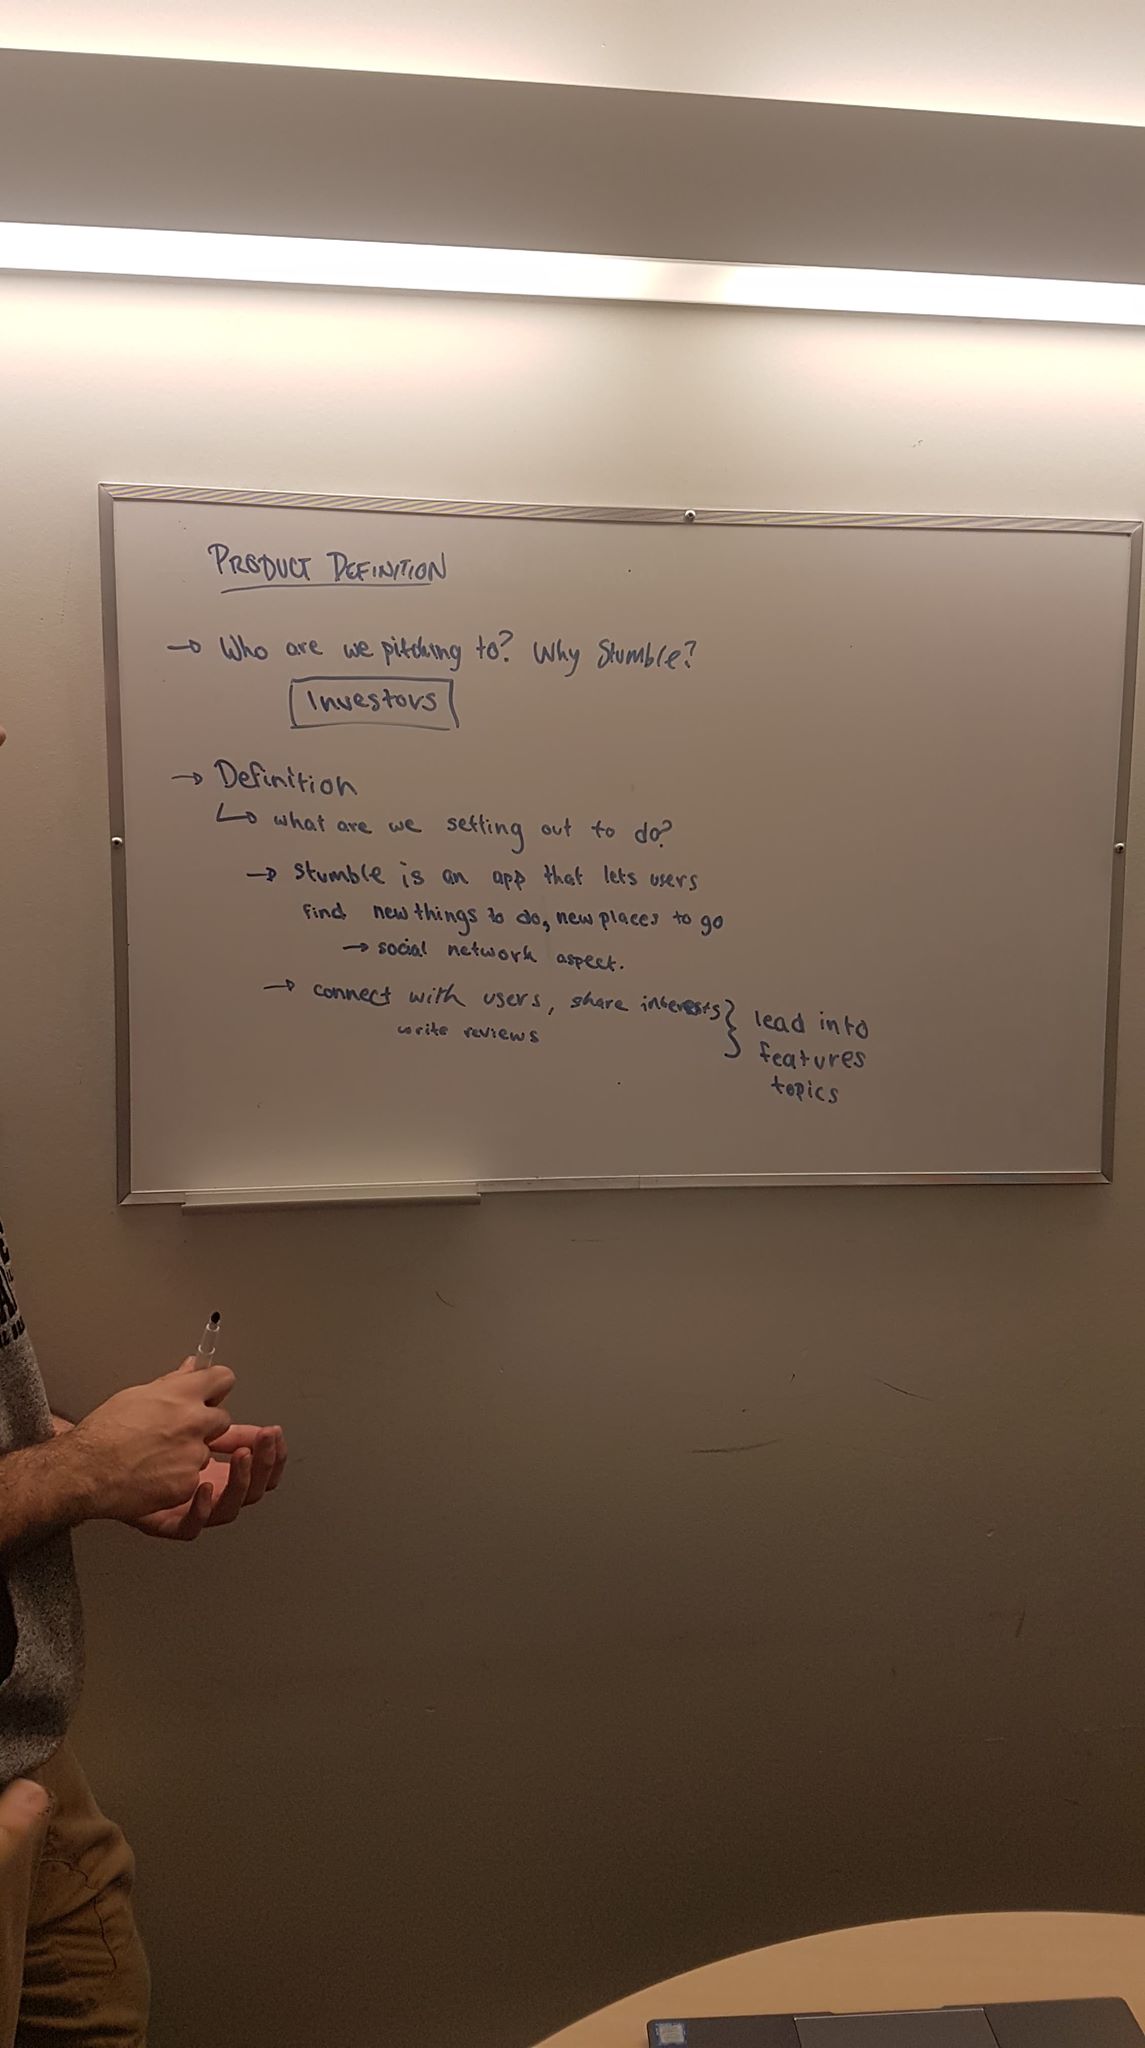 PRODUCT DEFINITION
→ Who are we pitching to? Why Stumble?
Investors
→ Definition
↳ what are we setting out to do?
→ stumble is an app that lets users
find new things to do, new places to go
→ social network aspect.
→ connect with users, share interests
write reviews
} lead into
features
topics